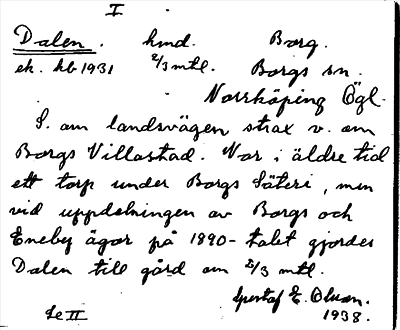 I
Dalen. hmd. Borg.
ek. kb 1931 2/3 mtl. Borgs sn.
Norrköping Ögl.
S. om landsvägen strax v. om
Borgs Villastad. Var i äldre tid
ett torp under Borgs Säteri, men
vid uppdelningen av Borgs och
Eneby ägor på 1890-talet gjordes
Dalen till gård om 2/3 mtl.
Gustaf E. Olson.
Se II 1938.